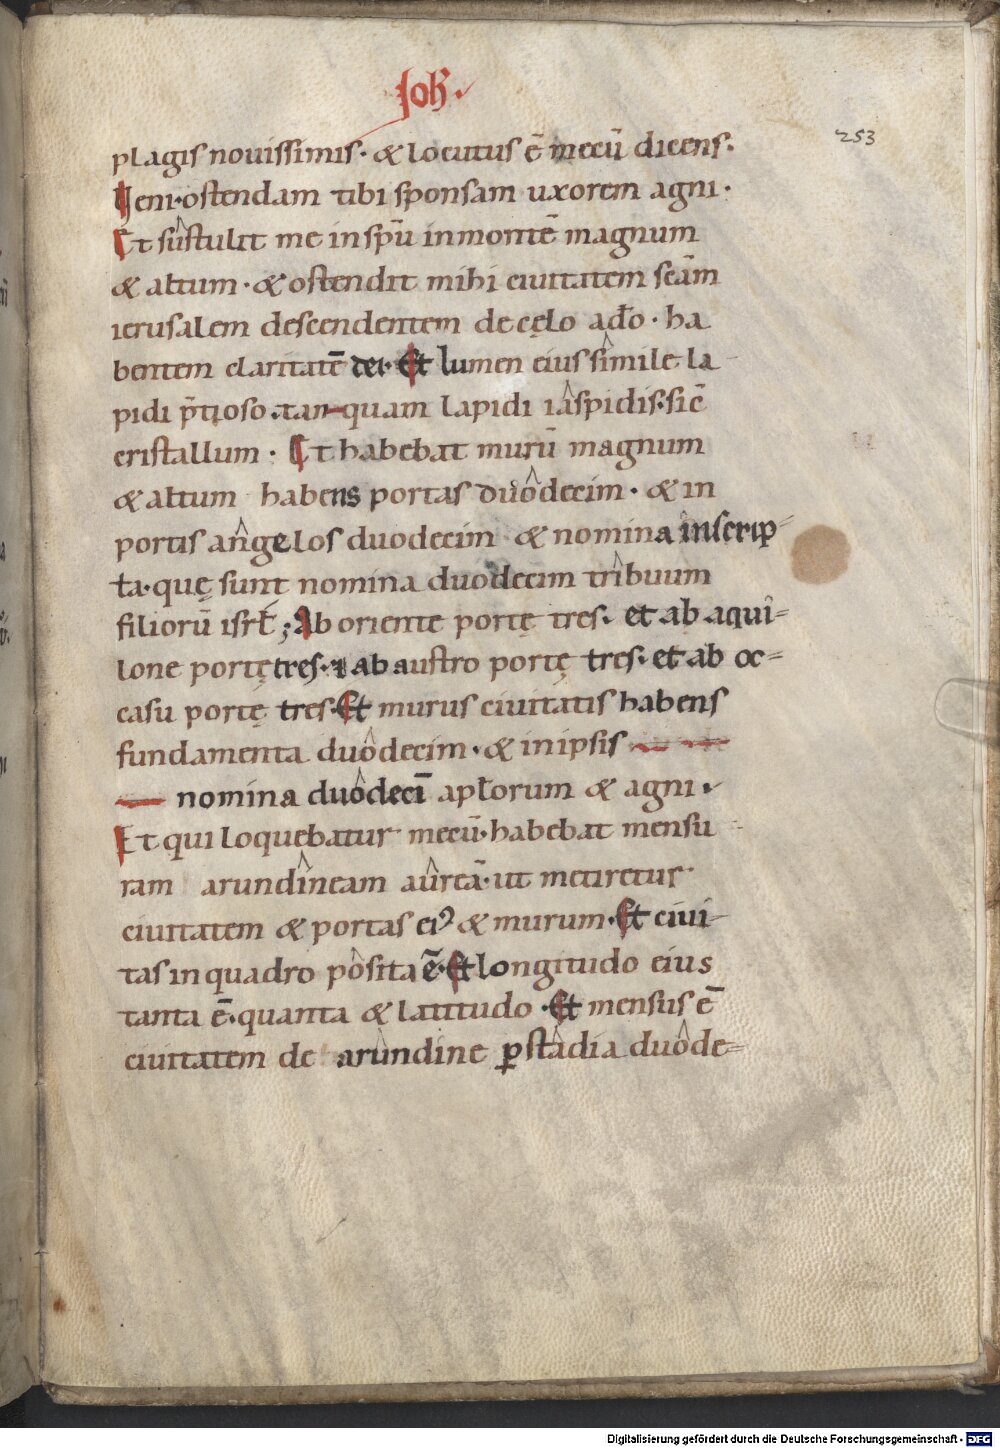 Joh.
253
plagis nouissimis. & locutus ē mecū dicens.
Veni. ostendam tibi sponsam uxorem agni.
Et sustulit me in spū in montē magnum
& altum. & ostendit mihi ciuitatem scām
ierusalem descendentem de cęlo a dō. ha
bentem claritatē dei. Et lumen eius simile la-
pidi p̄tioso. tan-quam lapidi iaspidis. sic̄
cristallum. Et habebat murū magnum
& altum habens portas duodecim. & in
portis angelos duodecim & nomina inscrip=
ta. quę sunt nomina duodecim tribuum
filiorū isrł; Ab oriente portę tres. et ab aqui=
lone portę tres. ⁊ ab austro portę tres. et ab oc=
casu portę tres. Et murus ciuitatis habens
fundamenta duodecim. & in ipsis
nomina duodecī apłorum & agni.
Et qui loquebatur mecū. habebat mensu-
ram arundineam aureā. ut metiretur
ciuitatem & portas ei⁹ & murum. Et ciui-
tas in quadro posita ē. Et longitudo eius
tanta ē. quanta & latitudo. Et mensus ē
ciuitatem de arundine ꝑ stadia duode=
Digitalisierung gefördert durch die Deutsche Forschungsgemeinschaft - DFG